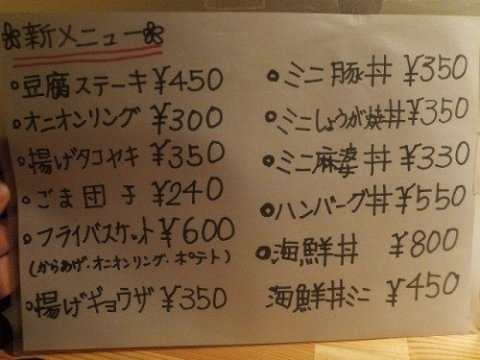 新メニュー
豆腐ステーキ ¥450
オニオンリング ¥300
揚げタコヤキ ¥350
ごま団子 ¥240
フライバスケット ¥600
(からあげ・オニオンリング・ポテト)
揚げギョウザ ¥350
ミニ豚丼 ¥350
ミニしょうが焼丼 ¥350
ミニ麻婆丼 ¥330
ハンバーグ丼 ¥550
海鮮丼 ¥800
海鮮丼ミニ ¥450